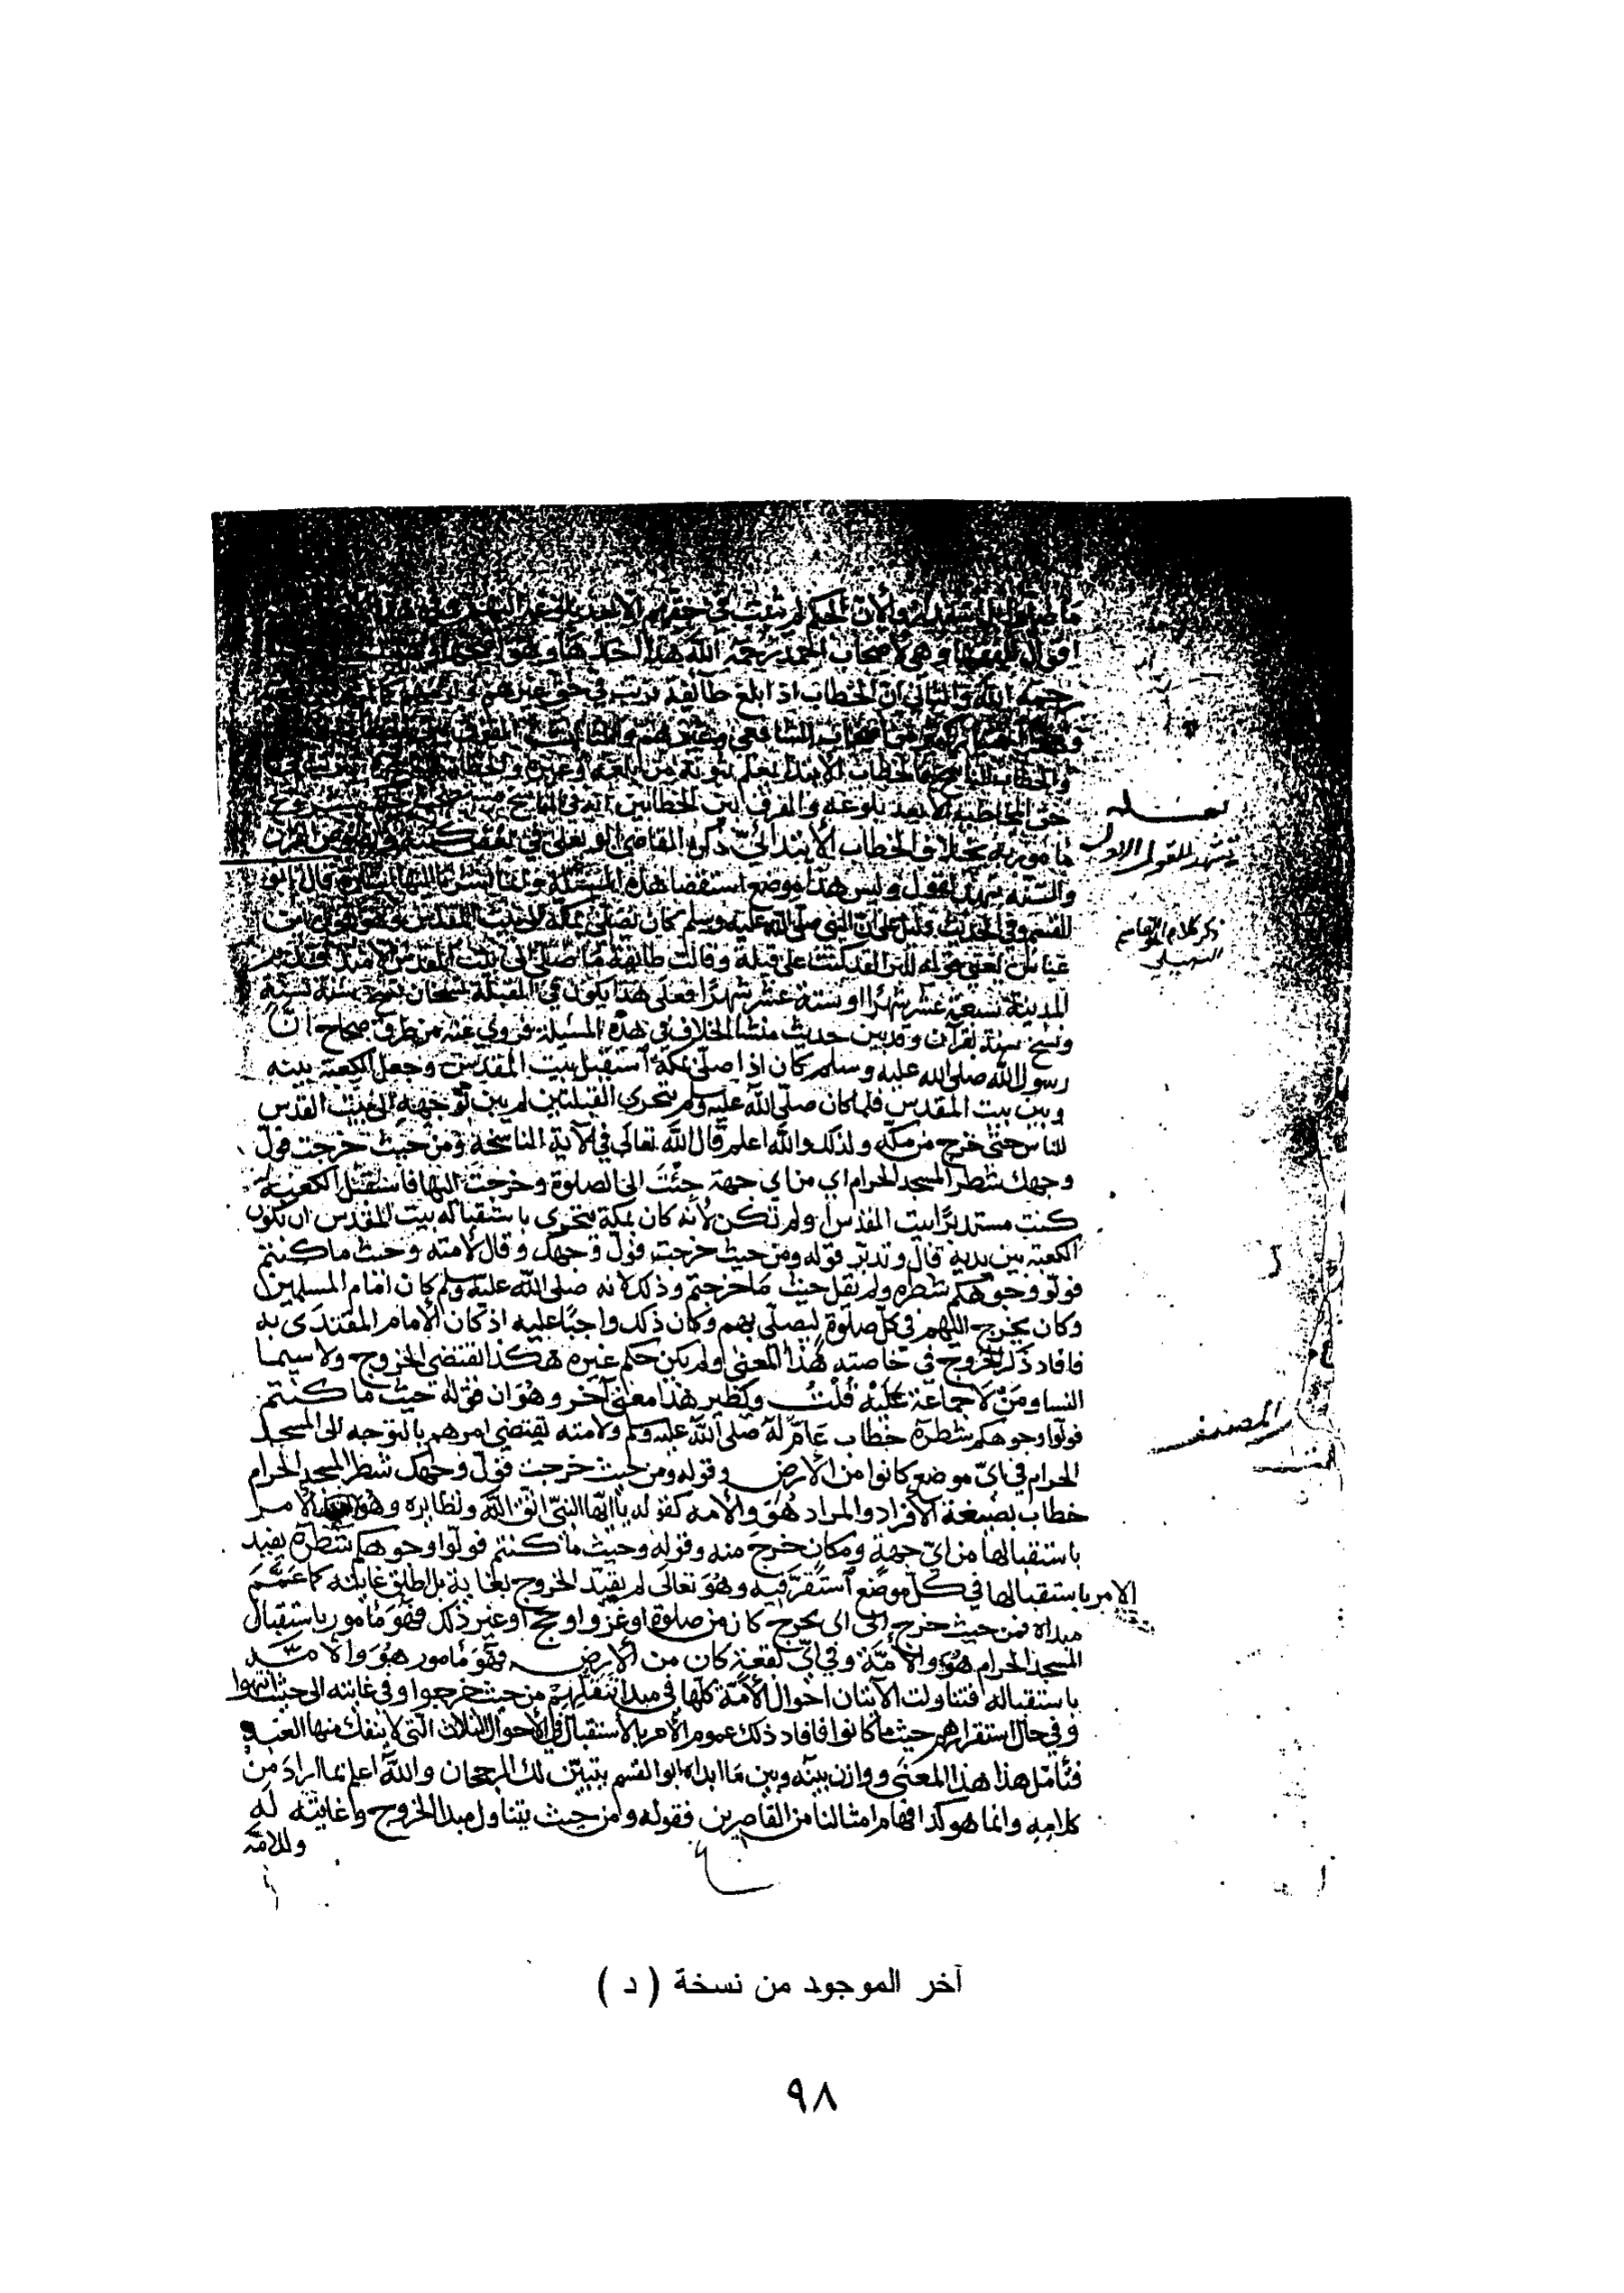 اقوال الفقها وهي لاصحاب احمد رحمه الله هذا احدها وهو
رحمه الله والثاني ان الخطاب اذا بلغ طائفة ترتب في حق غيرهم
اصحاب الشافعي وغيرهم والثالث الفرق بين الخطاب
والخطاب الناسخ فالخطاب الابتدائي يعم ثبوته من بلغه وغيره والخطاب
حق المخاطب الا بعد بلوغه والفرق بين الخطابين انه في الناسخ
مامور به بخلاف الخطاب الابتدائي ذكره القاضي ابو يعلى في بعض كتبه ونصوص القرآن
والسنة تشهد لهذا القول وليس هذا موضع استقصا هذه المسئلة وانما اشرنا اليها اشارة قال ابو
القسم وفي الحديث دليل على ان النبي صلى الله عليه وسلم كان يصلي بمكة الى بيت المقدس وهو قول ابن
عباس يعني بقوله للبرا لقد كنت على قبلة وقالت طائفة ما صلى الى بيت المقدس الا منذ قدم
المدينة سبعة عشر شهرا او ستة عشر شهرا فعلى هذا يكون في القبلة نسخان نسخ سنة بسنة
ونسخ سنة بقرآن وقد بين حديث منشا الخلاف في هذه المسئلة فروي عنه من طرق صحاح ان
رسول الله صلى الله عليه وسلم كان اذا صلى بمكة استقبل بيت المقدس وجعل الكعبة بينه
وبين بيت المقدس فلما كان صلى الله عليه وسلم يتحرى القبلتين لم يبن توجهه الى بيت المقدس
للناس حتى خرج من مكة ولذلك والله اعلم قال الله تعالى في الآية الناسخة ومن حيث خرجت فول
وجهك شطر المسجد الحرام اي من اي جهة جئت الى الصلوة وخرجت اليها فاستقبل الكعبة
كنت مستدبرا بيت المقدس او لم تكن لانه كان بمكة يتحرى باستقباله بيت المقدس ان تكون
الكعبة بين يديه قال وتدبر قوله ومن حيث خرجت فول وجهك وقال لامته وحيث ما كنتم
فولوا وجوهكم شطره ولم يقل حيث ما خرجتم وذلك لانه صلى الله عليه وسلم كان امام المسلمين
وكان يخرج اليهم في كل صلوة ليصلي بهم وكان ذلك واجبا عليه اذ كان الامام المقتدى به
فافاد ذكر الخروج في خاصته هذا المعنى ولم يكن حكم غيره هكذا يقتضي الخروج ولا سيما
النسا ومن لا جماعة عليه قلت ويظهر هذا معنى آخر وهو ان قوله حيث ما كنتم
فولوا وجوهكم شطره خطاب عام له صلى الله عليه وسلم ولامته يقتضي امرهم بالتوجه الى المسجد
الحرام في اي موضع كانوا من الارض وقوله ومن حيث خرجت فول وجهك شطر المسجد الحرام
خطاب بصيغة الافراد والمراد هو والامه كقوله يا ايها النبي اتق الله ونظايره وهو الامر
باستقبالها من اي جهة ومكان خرج منه وقوله وحيث ما كنتم فولوا وجوهكم شطره يفيد
الامر باستقبالها في كل موضع استقر فيه وهو تعالى لم يقيد الخروج بغاية بل اطلق غايته كما عمم
مبداه فمن حيث خرج الى اي مخرج كان من صلوة او غزو او حج او غير ذلك فهو مامور باستقبال
المسجد الحرام هو والامة وفي اي بقعة كان من الارض فهو مامور هو والامة
باستقباله فتناولت الآيتان احوال الامة كلها في مبدا تنقلهم من حيث خرجوا وفي غايته الى حيث انتهوا
وفي حال استقرارهم حيث ما كانوا فافاد ذلك عموم الامر بالاستقبال في الاحوال الثلاث التي لا ينفك منها العبد
فتامل هذا هذا المعنى ووازن بينه وبين ما ابداه ابو القسم يتبين لك الرجحان والله اعلم بما اراد من
كلامه وانما هو كد افهام امثالنا من القاصرين فقوله ومن حيث يتناول مبدا الخروج وغايته له
وللامة
يشهد للقول الاول
ذكر كلام ابو القاسم
السهيلي
المصنف
آخر الموجود من نسخة ( د )
٩٨